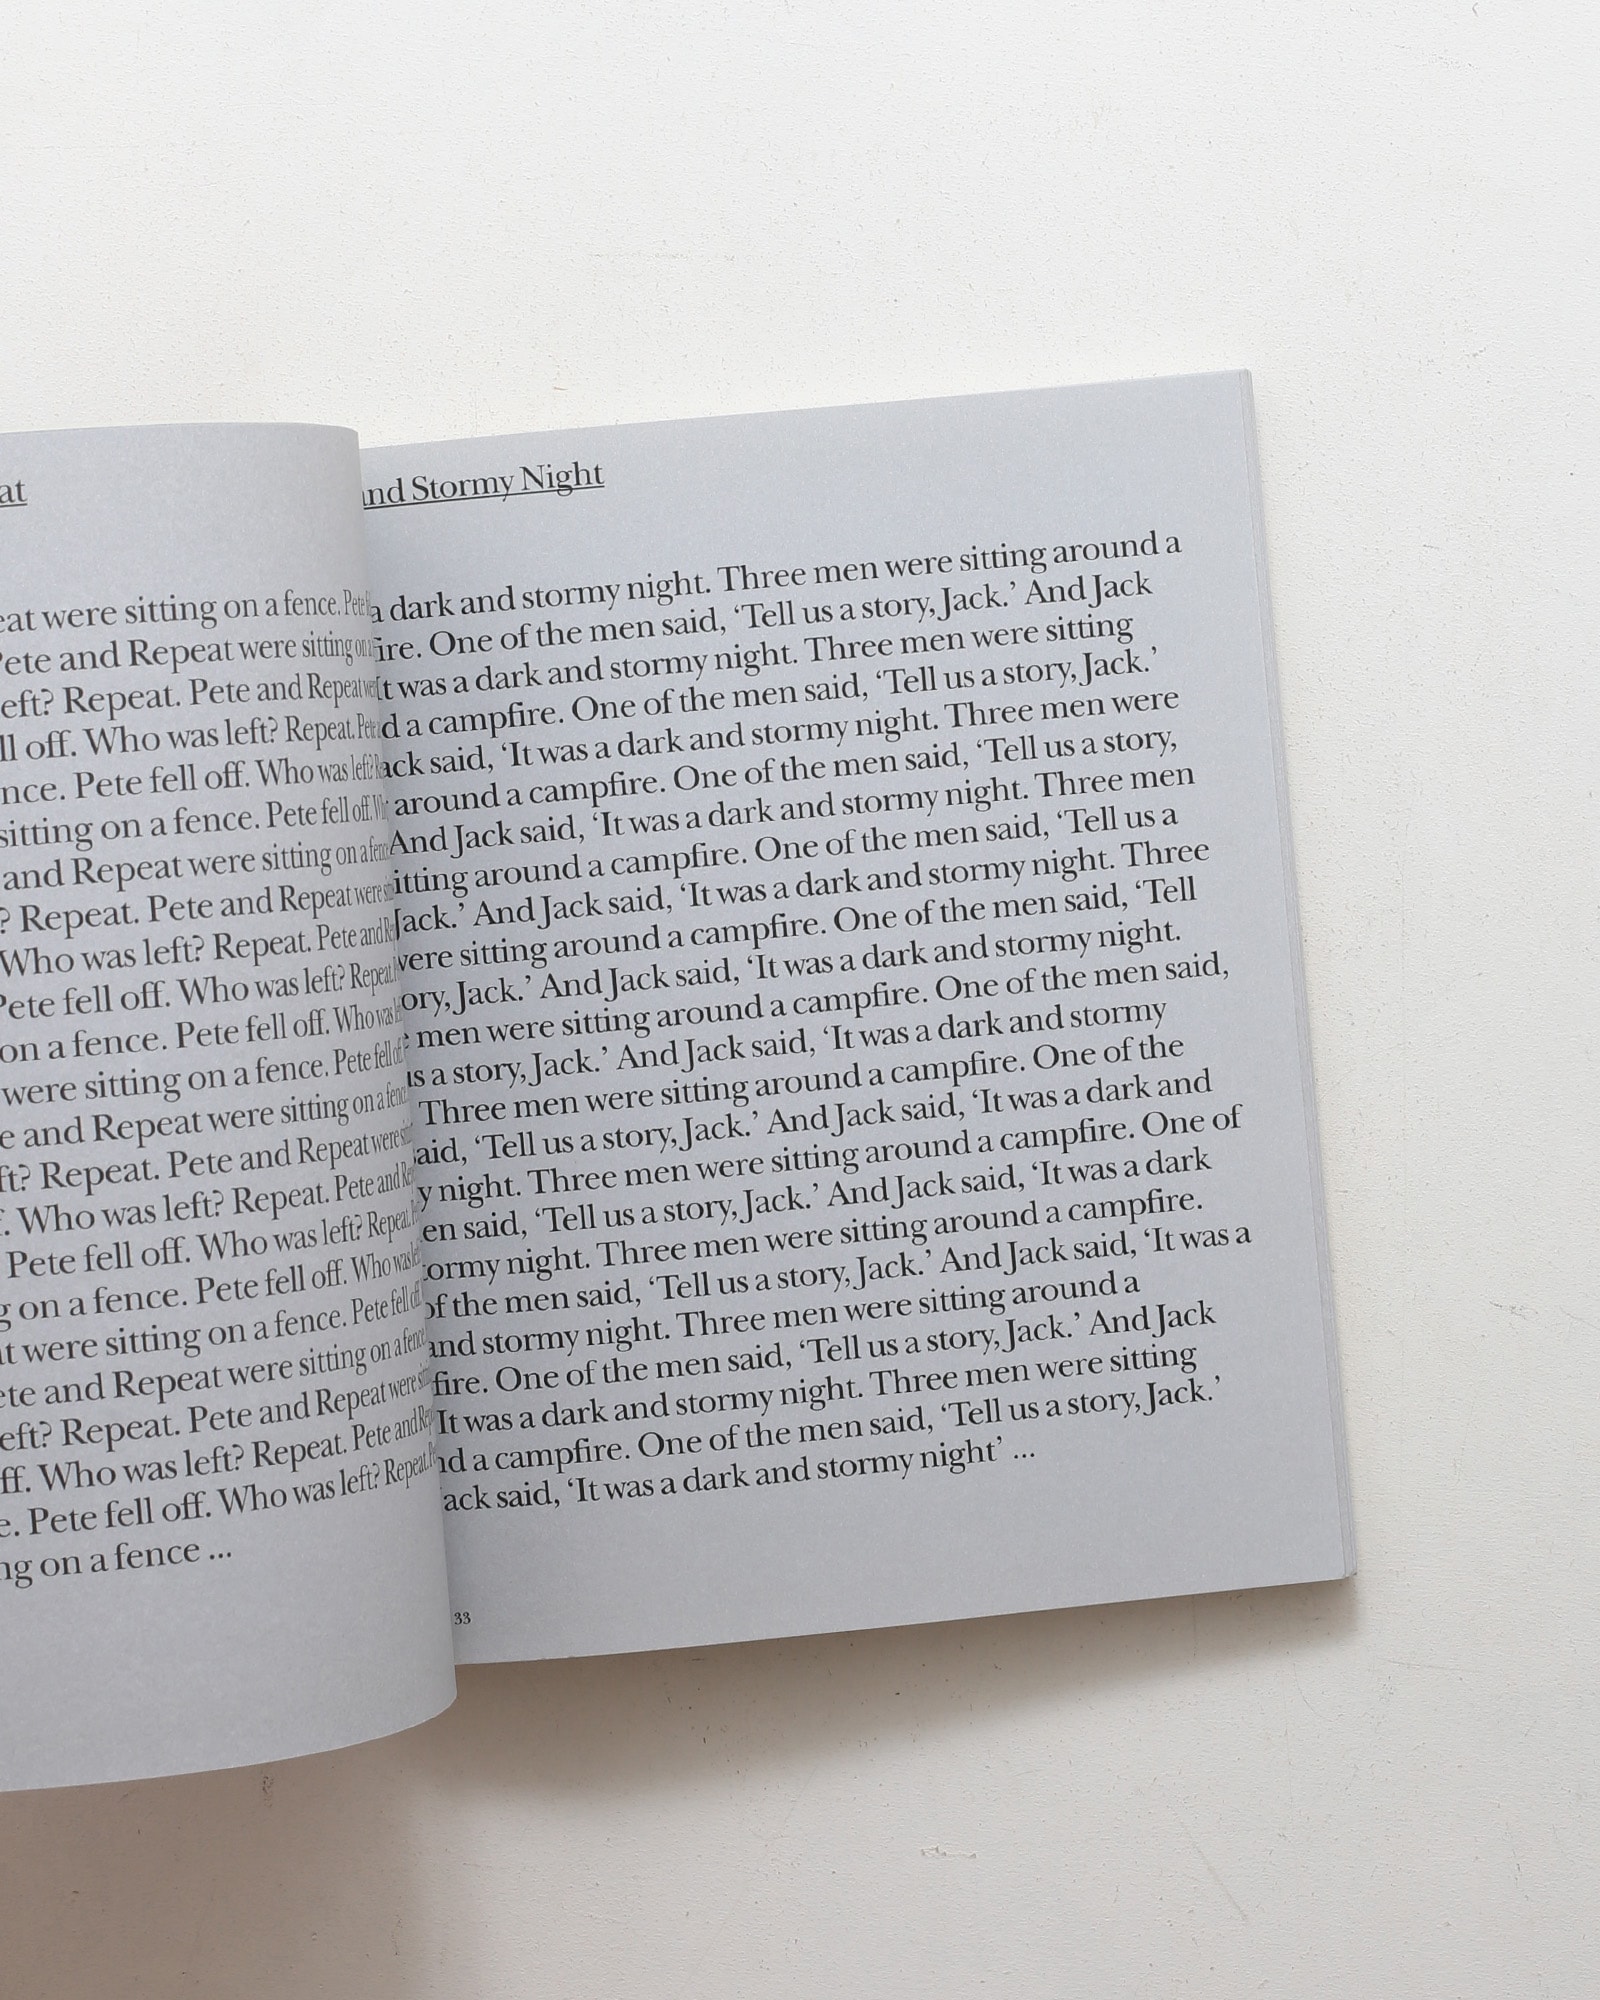 at
were sitting on a fence.
and Repeat were sitting on
left? Repeat. Pete and Repeat
off. Who was left? Repeat.
Pete fell off. Who was left?
sitting on a fence. Pete fell off.
and Repeat were sitting on a
? Repeat. Pete and Repeat were
Who was left? Repeat. Pete and
Pete fell off. Who was left? Repeat.
on a fence. Pete fell off. Who was
were sitting on a fence. Pete fell
and Repeat were sitting on a
Repeat. Pete and Repeat were
Who was left? Repeat. Pete and
Pete fell off. Who was left? Repeat.
on a fence. Pete fell off. Who was
were sitting on a fence. Pete fell
and Repeat were sitting on a
Repeat. Pete and Repeat were
Who was left? Repeat. Pete and
Pete fell off. Who was left? Repeat.
on a fence ...
and Stormy Night
a dark and stormy night. Three men were sitting around a
One of the men said, ‘Tell us a story, Jack.’ And Jack
It was a dark and stormy night. Three men were sitting
a campfire. One of the men said, ‘Tell us a story, Jack.’
said, ‘It was a dark and stormy night. Three men were
around a campfire. One of the men said, ‘Tell us a story,
And Jack said, ‘It was a dark and stormy night. Three men
sitting around a campfire. One of the men said, ‘Tell us a
Jack.’ And Jack said, ‘It was a dark and stormy night. Three
were sitting around a campfire. One of the men said, ‘Tell
Jack.’ And Jack said, ‘It was a dark and stormy night.
men were sitting around a campfire. One of the men said,
us a story, Jack.’ And Jack said, ‘It was a dark and stormy
Three men were sitting around a campfire. One of the
said, ‘Tell us a story, Jack.’ And Jack said, ‘It was a dark and
night. Three men were sitting around a campfire. One of
said, ‘Tell us a story, Jack.’ And Jack said, ‘It was a dark
night. Three men were sitting around a campfire.
of the men said, ‘Tell us a story, Jack.’ And Jack said, ‘It was a
and stormy night. Three men were sitting around a
fire. One of the men said, ‘Tell us a story, Jack.’ And Jack
‘It was a dark and stormy night. Three men were sitting
a campfire. One of the men said, ‘Tell us a story, Jack.’
Jack said, ‘It was a dark and stormy night’ ...
33